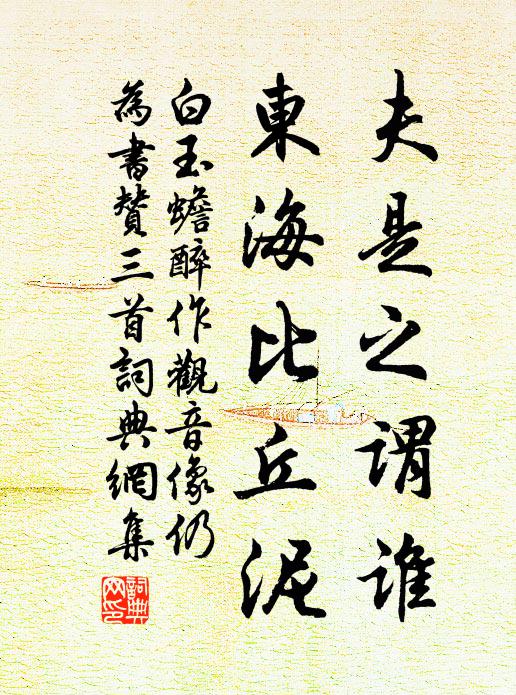 夫是之謂誰
東海比丘泥
白玉蟾醉作觀音像仍
為書贊三首詞典網集
詞典